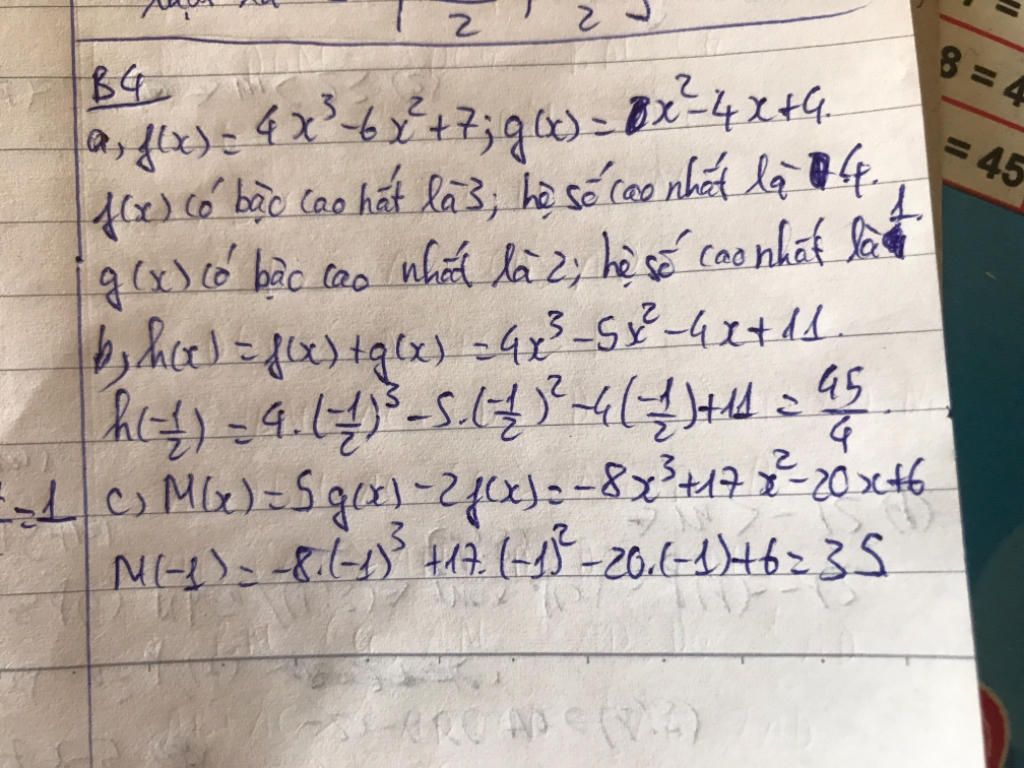 2 2
B4
a, f(x) = 4x³ - 6x² + 7; g(x) = x² - 4x + 4.
f(x) có bậc cao hất là 3; hệ số cao nhất là 4.
g(x) có bậc cao nhất là 2; hệ số cao nhất là 1.
b, h(x) = f(x) + g(x) = 4x³ - 5x² - 4x + 11.
h(-1/2) = 4.(-1/2)³ - 5.(-1/2)² - 4(-1/2) + 11 = 45/4.
=1
c, M(x) = 5g(x) - 2f(x) = -8x³ + 17x² - 20x + 6
M(-1) = -8.(-1)³ + 17.(-1)² - 20.(-1) + 6 = 35
8 = 4
= 45